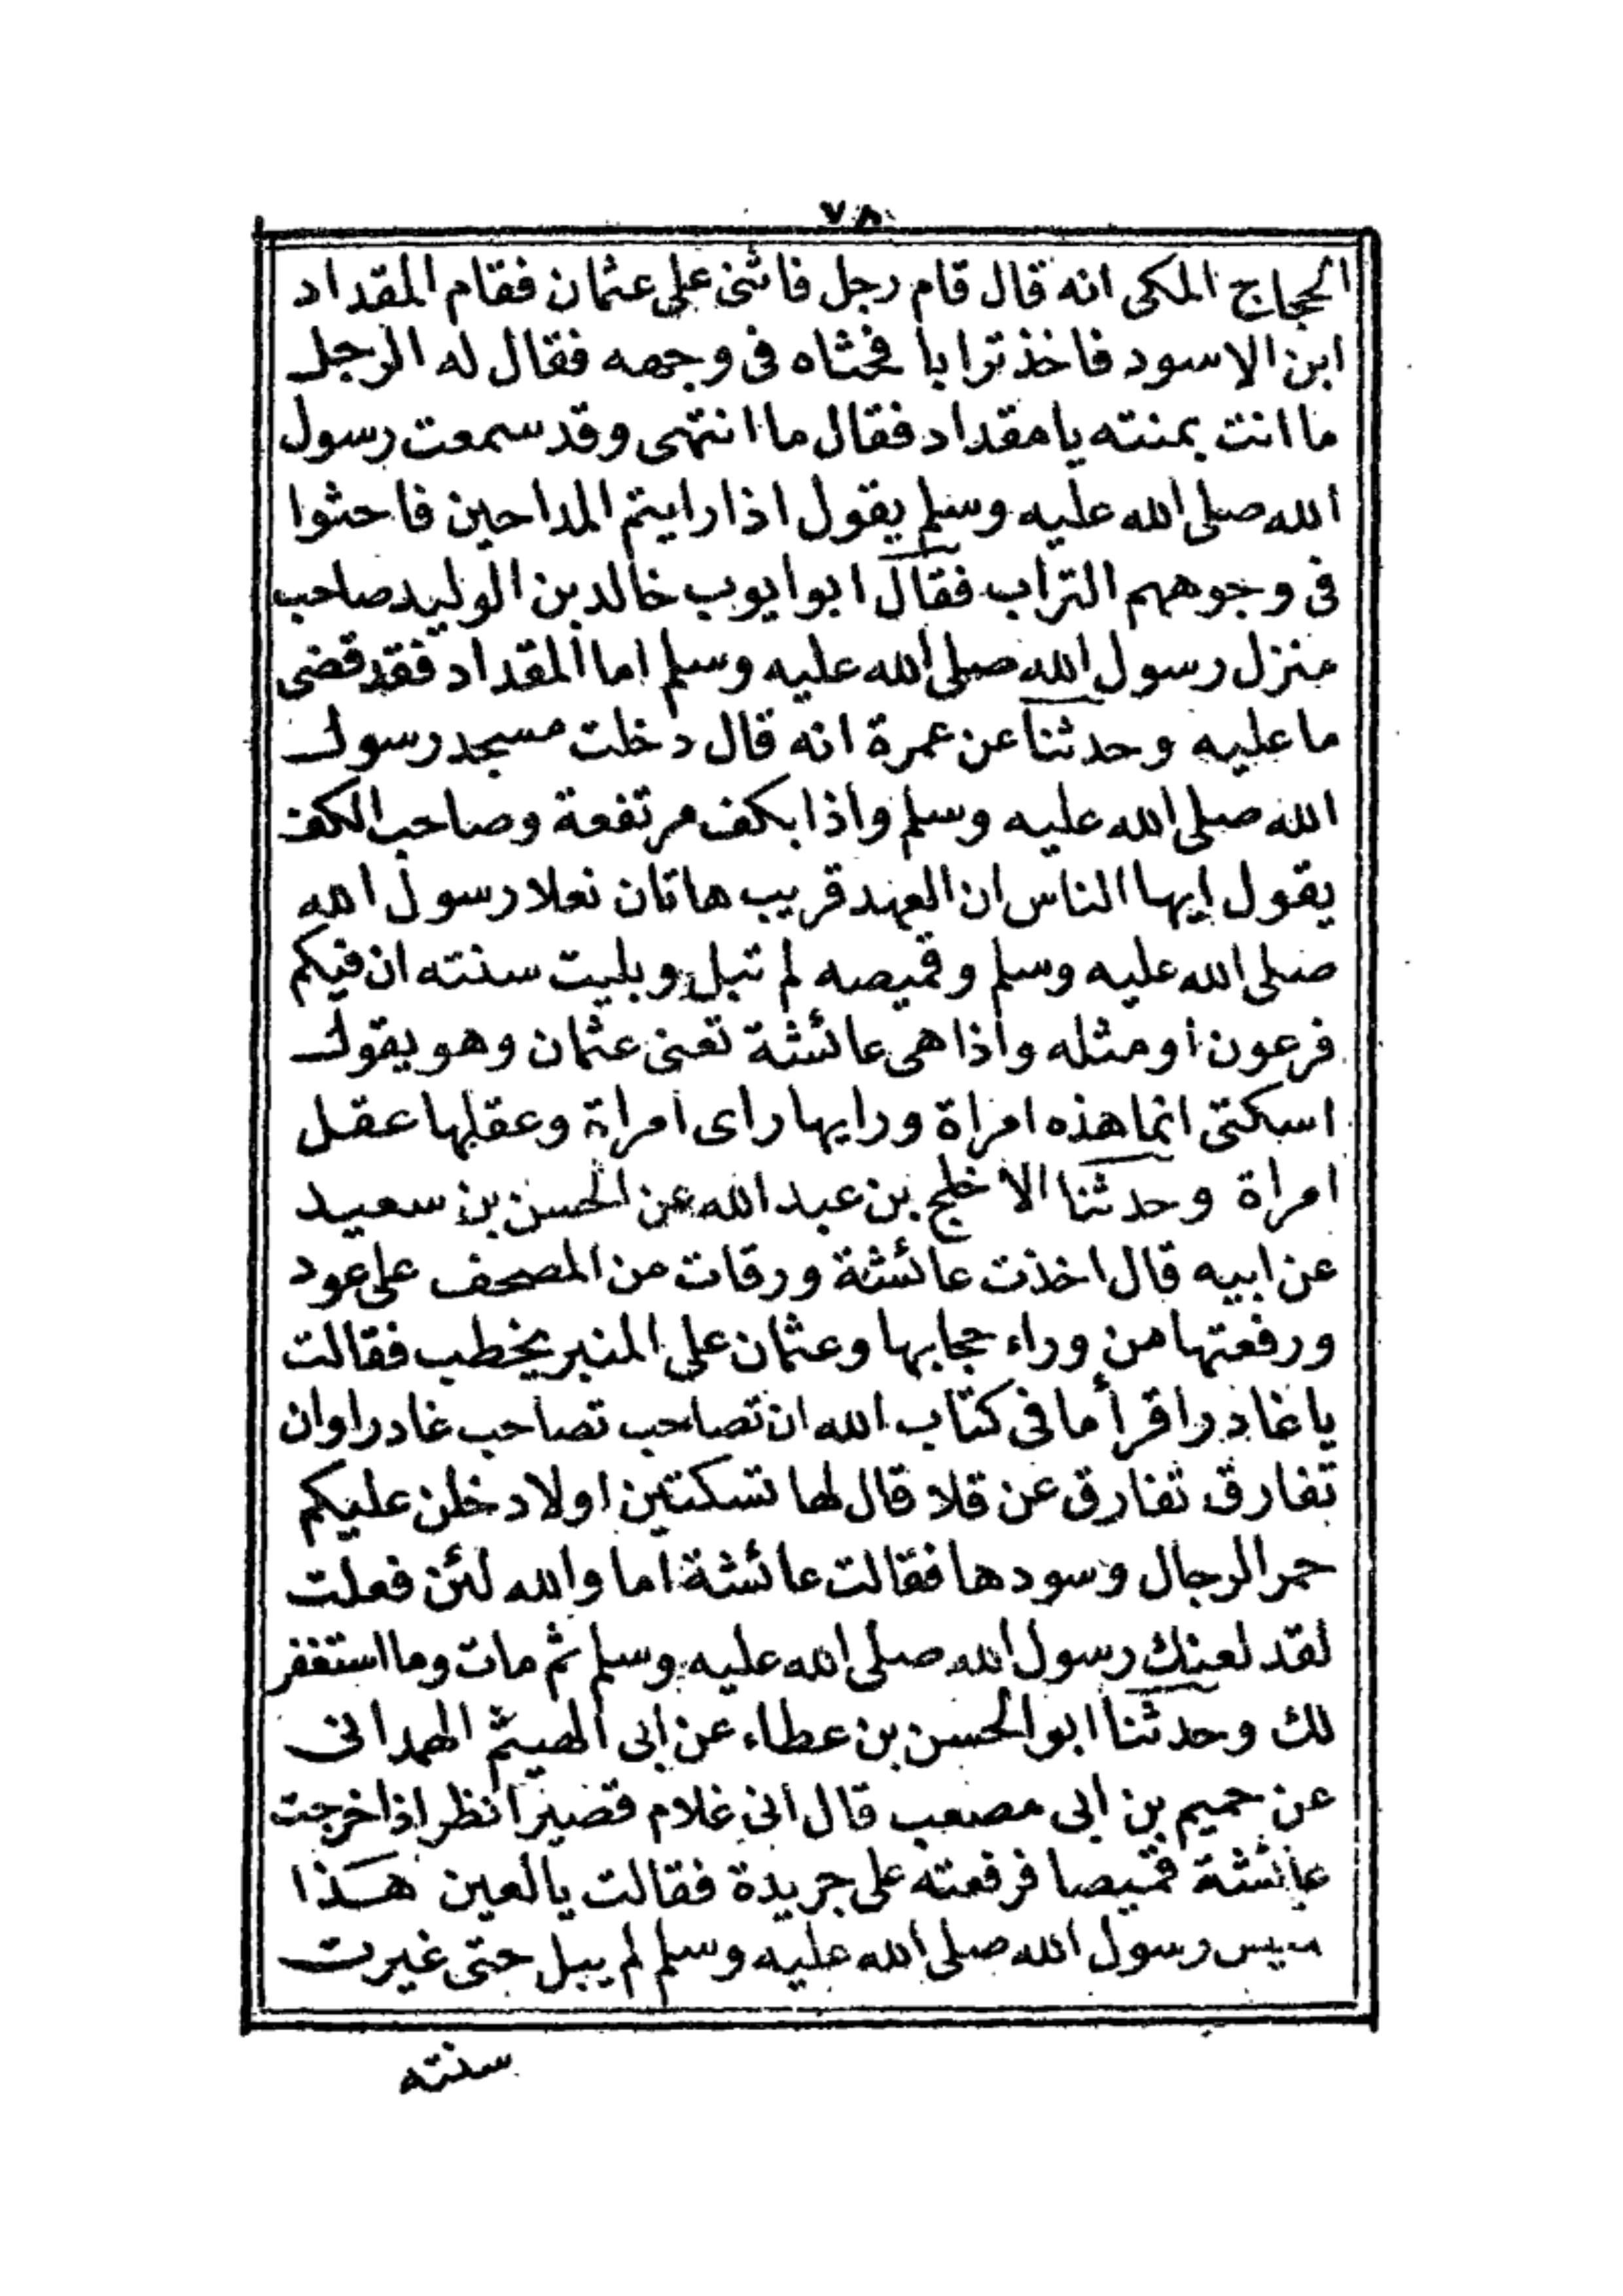 ٧٨
الحجاج المكى انه قال قام رجل فاثنى على عثمان فقام المقداد
ابن الاسود فاخذ ترابا فحثاه فى وجهه فقال له الرجل
ما انت بمنته يا مقداد فقال ما انتهى وقد سمعت رسول
الله صلى الله عليه وسلم يقول اذا رايتم المداحين فاحثوا
فى وجوههم التراب فقال ابو ايوب خالد بن الوليد صاحب
منزل رسول الله صلى الله عليه وسلم اما المقداد فقد قضى
ما عليه وحدثنا عن عمرة انه قال دخلت مسجد رسول
الله صلى الله عليه وسلم واذا بكف مرتفعة وصاحب الكف
يقول ايها الناس ان العهد قريب هاتان نعلا رسول الله
صلى الله عليه وسلم وقميصه لم تبل وبليت سنته ان فيكم
فرعون او مثله واذا هى عائشة تعنى عثمان وهو يقول
اسكتى انما هذه امراة ورايها راى امراة وعقلها عقل
امراة وحدثنا الاخلج بن عبد الله عن الحسن بن سعيد
عن ابيه قال اخذت عائشة ورقات من المصحف على عود
ورفعتها من وراء حجابها وعثمان على المنبر يخطب فقالت
يا غادر اقرأ ما فى كتاب الله ان تصاحب تصاحب غادرا وان
تفارق تفارق عن قلا قال لها تسكتين اولا دخلن عليكم
حمر الرجال وسودها فقالت عائشة اما والله لئن فعلت
لقد لعنك رسول الله صلى الله عليه وسلم ثم مات وما استغفر
لك وحدثنا ابو الحسن بن عطاء عن ابى الهيثم الهمدانى
عن حميم بن ابى مصعب قال انى غلام قصير انظر اذ اخرجت
عائشة قميصا فرفعته على جريدة فقالت يا لعين هذا
ميس رسول الله صلى الله عليه وسلم لم يبل حتى غيرت
سنته